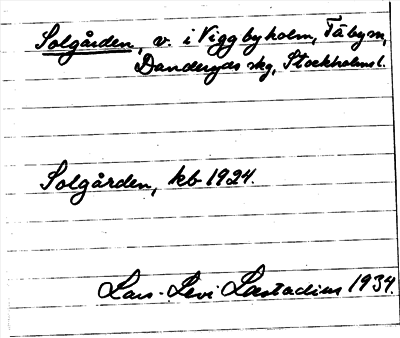 Solgården, v. i Viggbyholm, Täby sn,
Danderyds skg, Stockholms l.
Solgården, kb 1924.
Lars-Levi Læstadius 1934.